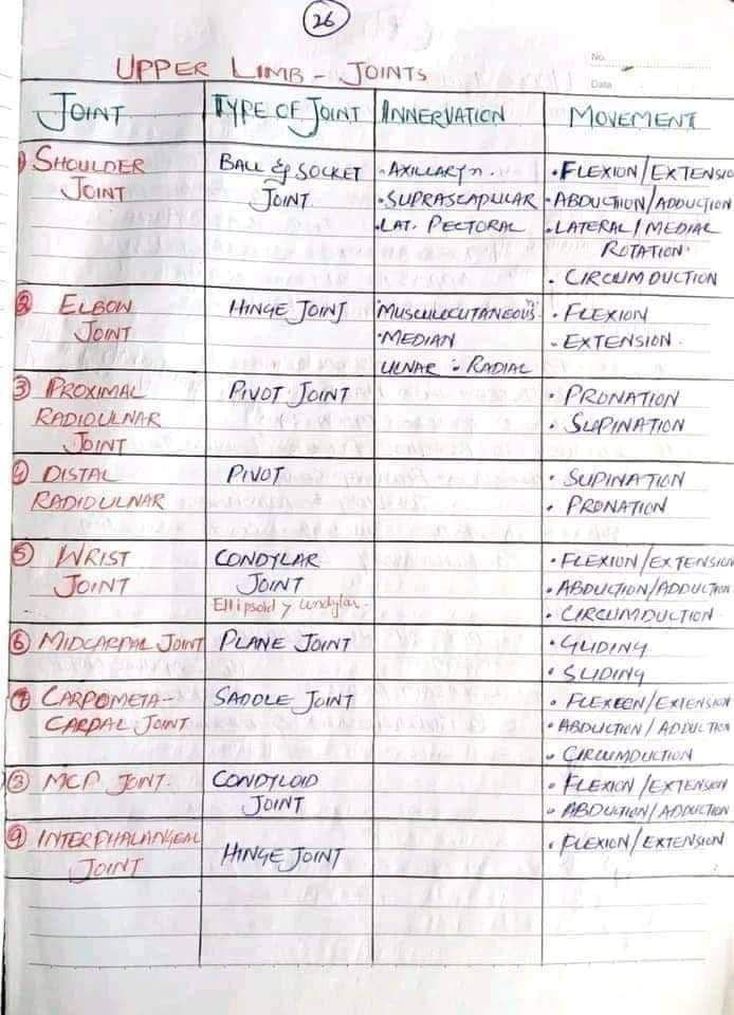 26
No.
Data
UPPER LIMB - JOINTS
JOINT TYPE OF JOINT INNERVATION MOVEMENT
1) SHOULDER JOINT
BALL & SOCKET JOINT.
- AXILLARY n.
• SUPRASCAPULAR
• LAT. PECTORAL
• FLEXION/EXTENSIO
• ABDUCTION/ADDUCTION
• LATERAL/MEDIAL
ROTATION.
• CIRCUMDUCTION
2 ELBOW
JOINT
HINGE JOINT
MUSCULOCUTANEOUS
• MEDIAN
ULNAR • RADIAL
• FLEXION
- EXTENSION.
3 PROXIMAL
RADIOULNAR
JOINT
PIVOT JOINT
• PRONATION
• SUPINATION
4 DISTAL
RADIOULNAR
PIVOT
• SUPINATION
• PRONATION
5 WRIST
JOINT
CONDYLAR
JOINT
Ellipsoid > condylar.
• FLEXION/EXTENSION
• ABDUCTION/ADDUCTION
• CIRCUMDUCTION
6 MIDCARPAL JOINT
PLANE JOINT
• GLIDING
• SLIDING
7 CARPOMETA-
CARPAL JOINT
SADDLE JOINT
• FLEXEEN/EXTENSION
• ABDUCTION/ADDUCTION
• CIRCUMDUCTION
MCP JOINT.
CONDYLOID
JOINT
• FLEXION/EXTENSION
• ABDUCTION/ADDUCTION
9 INTERPHALANGEAL
JOINT
HINGE JOINT
• FLEXION/EXTENSION